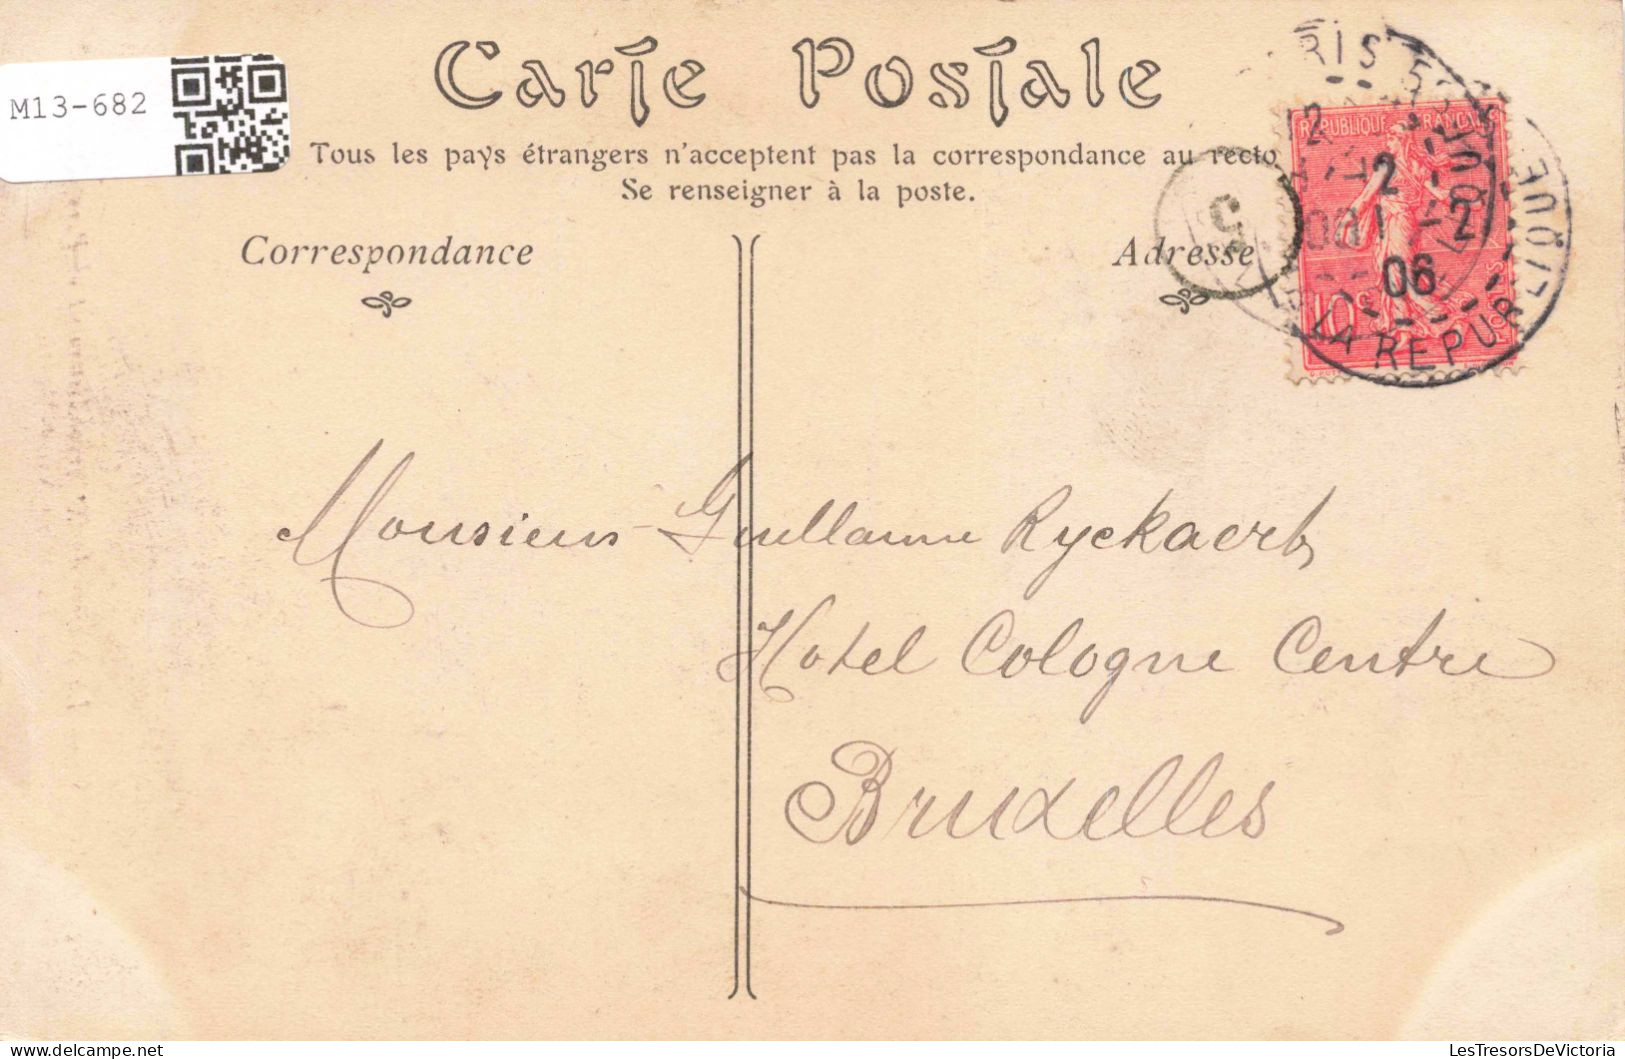 Carte Postale
M13-682
Tous les pays étrangers n'acceptent pas la correspondance au recto
Se renseigner à la poste.
Correspondance
Adresse
REPUBLIQUE FRANÇAISE
5
2
06
10
LA REPUBLIQUE
Monsieur Guillaume Ryckaert,
Hotel Cologne Centre
Bruxelles
LesTresorsDeVictoria
delcampe.net